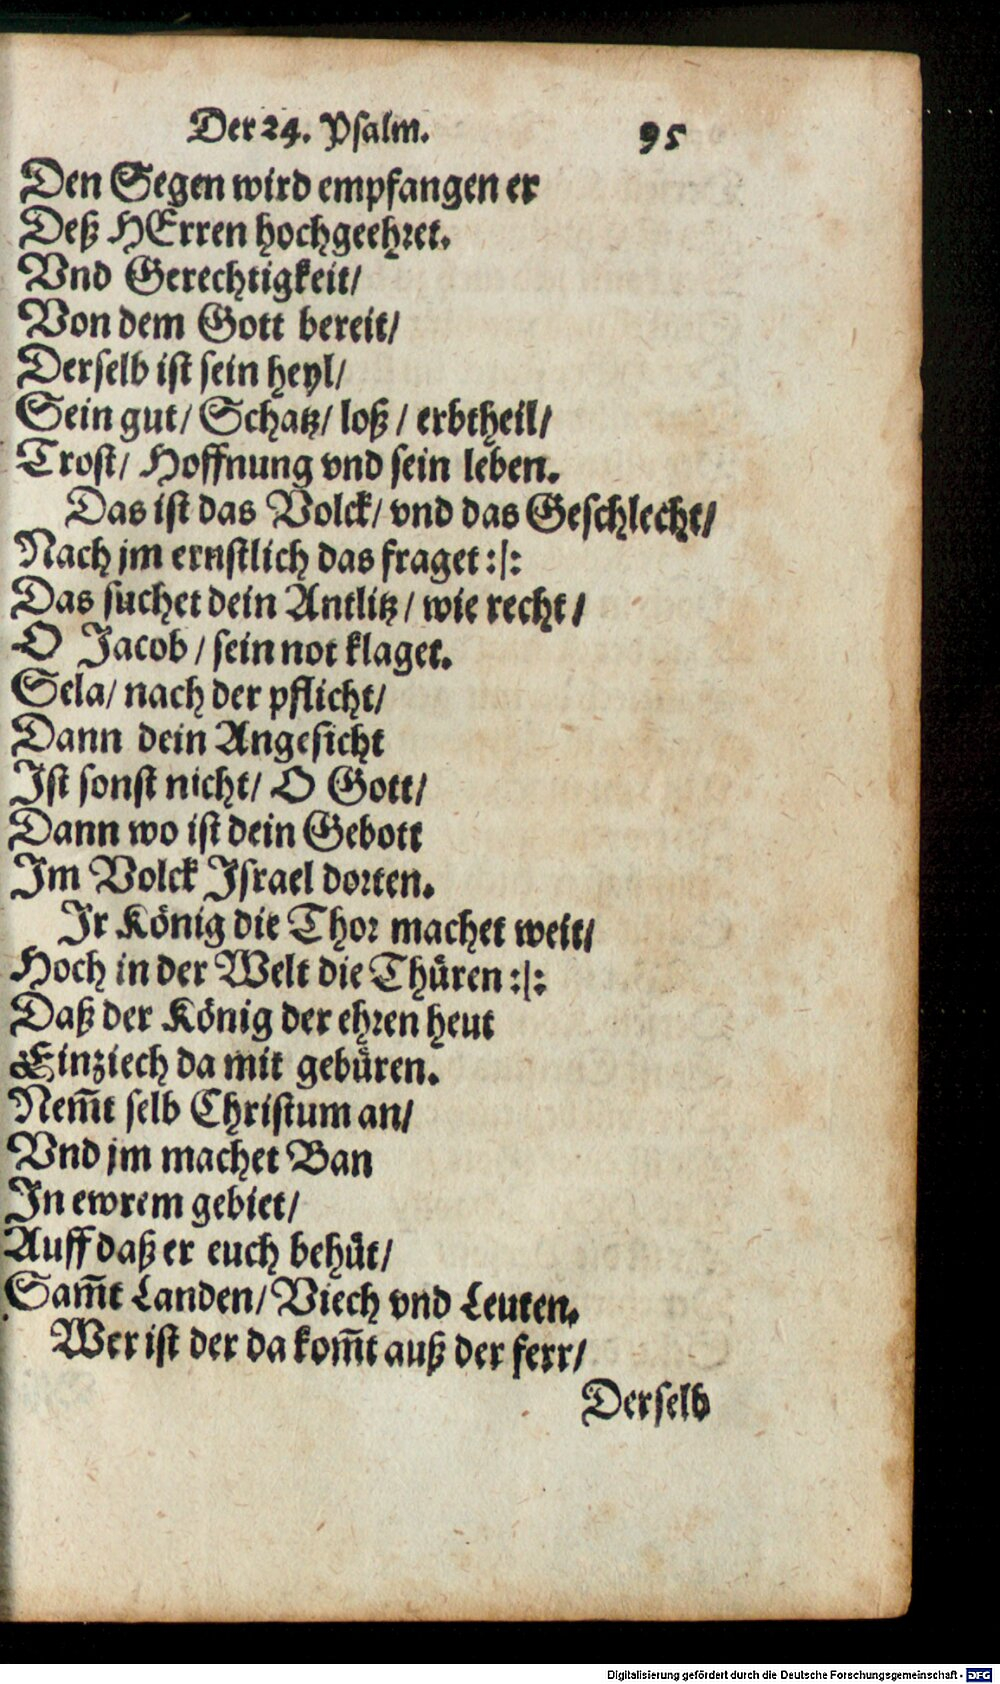 Der 24. Psalm. 95
Den Segen wird empfangen er
Deß HErren hochgeehret.
Vnd Gerechtigkeit/
Von dem Gott bereit/
Derselb ist sein heyl/
Sein gut/ Schatz/ loß / erbtheil/
Trost/ Hoffnung vnd sein leben.
Das ist das Volck/ vnd das Geschlecht/
Nach jm ernstlich das fraget :|:
Das suchet dein Antlitz/ wie recht/
O Jacob / sein not klaget.
Sela/ nach der pflicht/
Dann dein Angesicht
Ist sonst nicht/ O Gott/
Dann wo ist dein Gebott
Im Volck Israel dorten.
Ir König die Thor machet weit/
Hoch in der Welt die Thüren :|:
Daß der König der ehren heut
Einziech da mit gebüren.
Nem̃t selb Christum an/
Vnd jm machet Ban
In ewrem gebiet/
Auff daß er euch behüt/
Sam̃t Landen/ Viech vnd Leuten.
Wer ist der da kom̃t auß der ferr/
Derselb
Digitalisierung gefördert durch die Deutsche Forschungsgemeinschaft - DFG